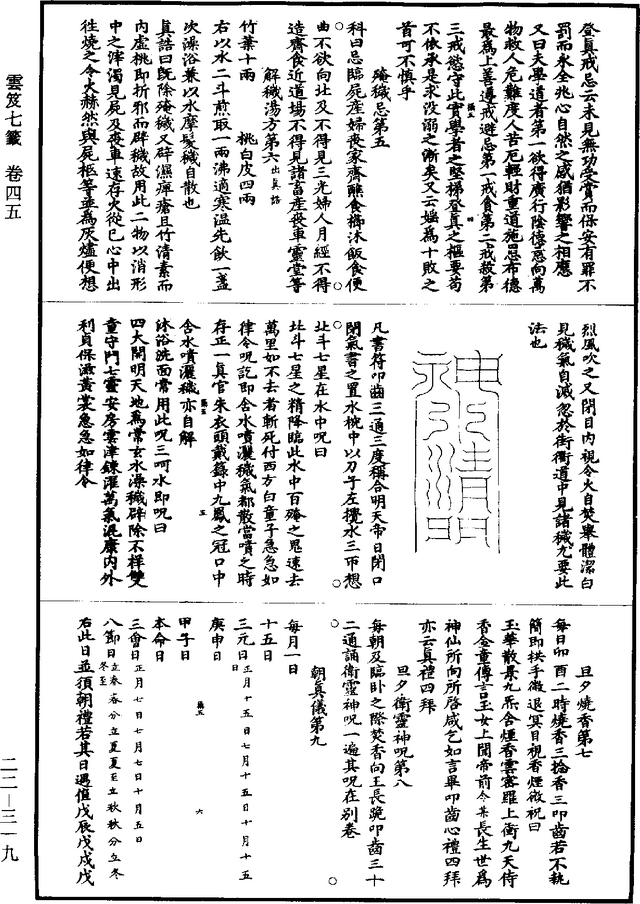 雲笈七籤 卷四五
登真戒忌云未見無功受賞而保安有罪不
罰而永全兆心自然之感猶影響之相應
又曰夫學道者第一欲得廣行陰德慈向萬
物救人危難度人苦厄輕財重道施恩布德
最為上善遵戒避忌第一戒貪第二戒殺第
三戒慾守此實學者之堅梯登真之樞要苟
不依承是求沒溺之漸矣又云婬為十敗之
首可不慎乎
殗穢忌第五
科曰忌臨屍產婦喪家齋醮食櫛沐飯食便
曲不欲向北及不得見三光婦人月經不得
造齋食近道場不得見諸畜產喪車靈堂等
解穢湯方第六出真誥
竹葉十兩 桃白皮四兩
右以水二斗煎取一兩沸適寒溫先飲一盞
次澡浴兼以水摩髮穢自散也
真誥曰既除殗穢又辟濕痺瘡且竹清素而
內虛桃即折邪而辟穢故用此二物以消形
中之滓濁見屍及喪車速存火從己心中出
往燒之令火赫然與屍柩等並為灰燼便想
烈風吹之又閉目內視令火自焚舉體潔白
見穢氣自滅忽於街衢道中見諸穢尤要此
法也
凡書符叩齒三通三度稱合明天帝日閉口
閉氣書之置水椀中以刀子左攪水三帀想
北斗七星在水中呪曰
北斗七星之精降臨此水中百殗之鬼速去
萬里如不去者斬死付西方白童子急急如
律令呪訖即含水噴灑穢氣都散當噴之時
存正一真官朱衣頭戴籙中九鳳之冠口中
含水噴灑穢亦自解
沐浴洗面常用此呪三呵水即呪曰
四大開明天地為常玄水澡穢辟除不祥雙
童守門七靈安房雲津鍊濯萬氣混康內外
利貞保滋黃裳急急如律令
旦夕燒香第七
每日卯酉二時燒香三捻香三叩齒若不執
簡即拱手微退冥目視香煙微祝曰
玉華散景九炁含煙香雲密羅上衝九天侍
香金童傳言玉女上聞帝前令某長生世為
神仙所向所啓咸乞如言畢叩齒心禮四拜
亦云真禮四拜
旦夕衛靈神呪第八
每朝及臨臥之際焚香向王長跪叩齒三十
二通誦衛靈神呪一遍其呪在別卷
朝真儀第九
每月一日
十五日
三元日正月十五日七月十五日十月十五日
庚申日
甲子日
本命日
三會日正月七日七月七日十月五日
八節日立春春分立夏夏至立秋秋分立冬冬至
右此日並須朝禮若其日遇值戊辰戊戌戊
二二—三一九